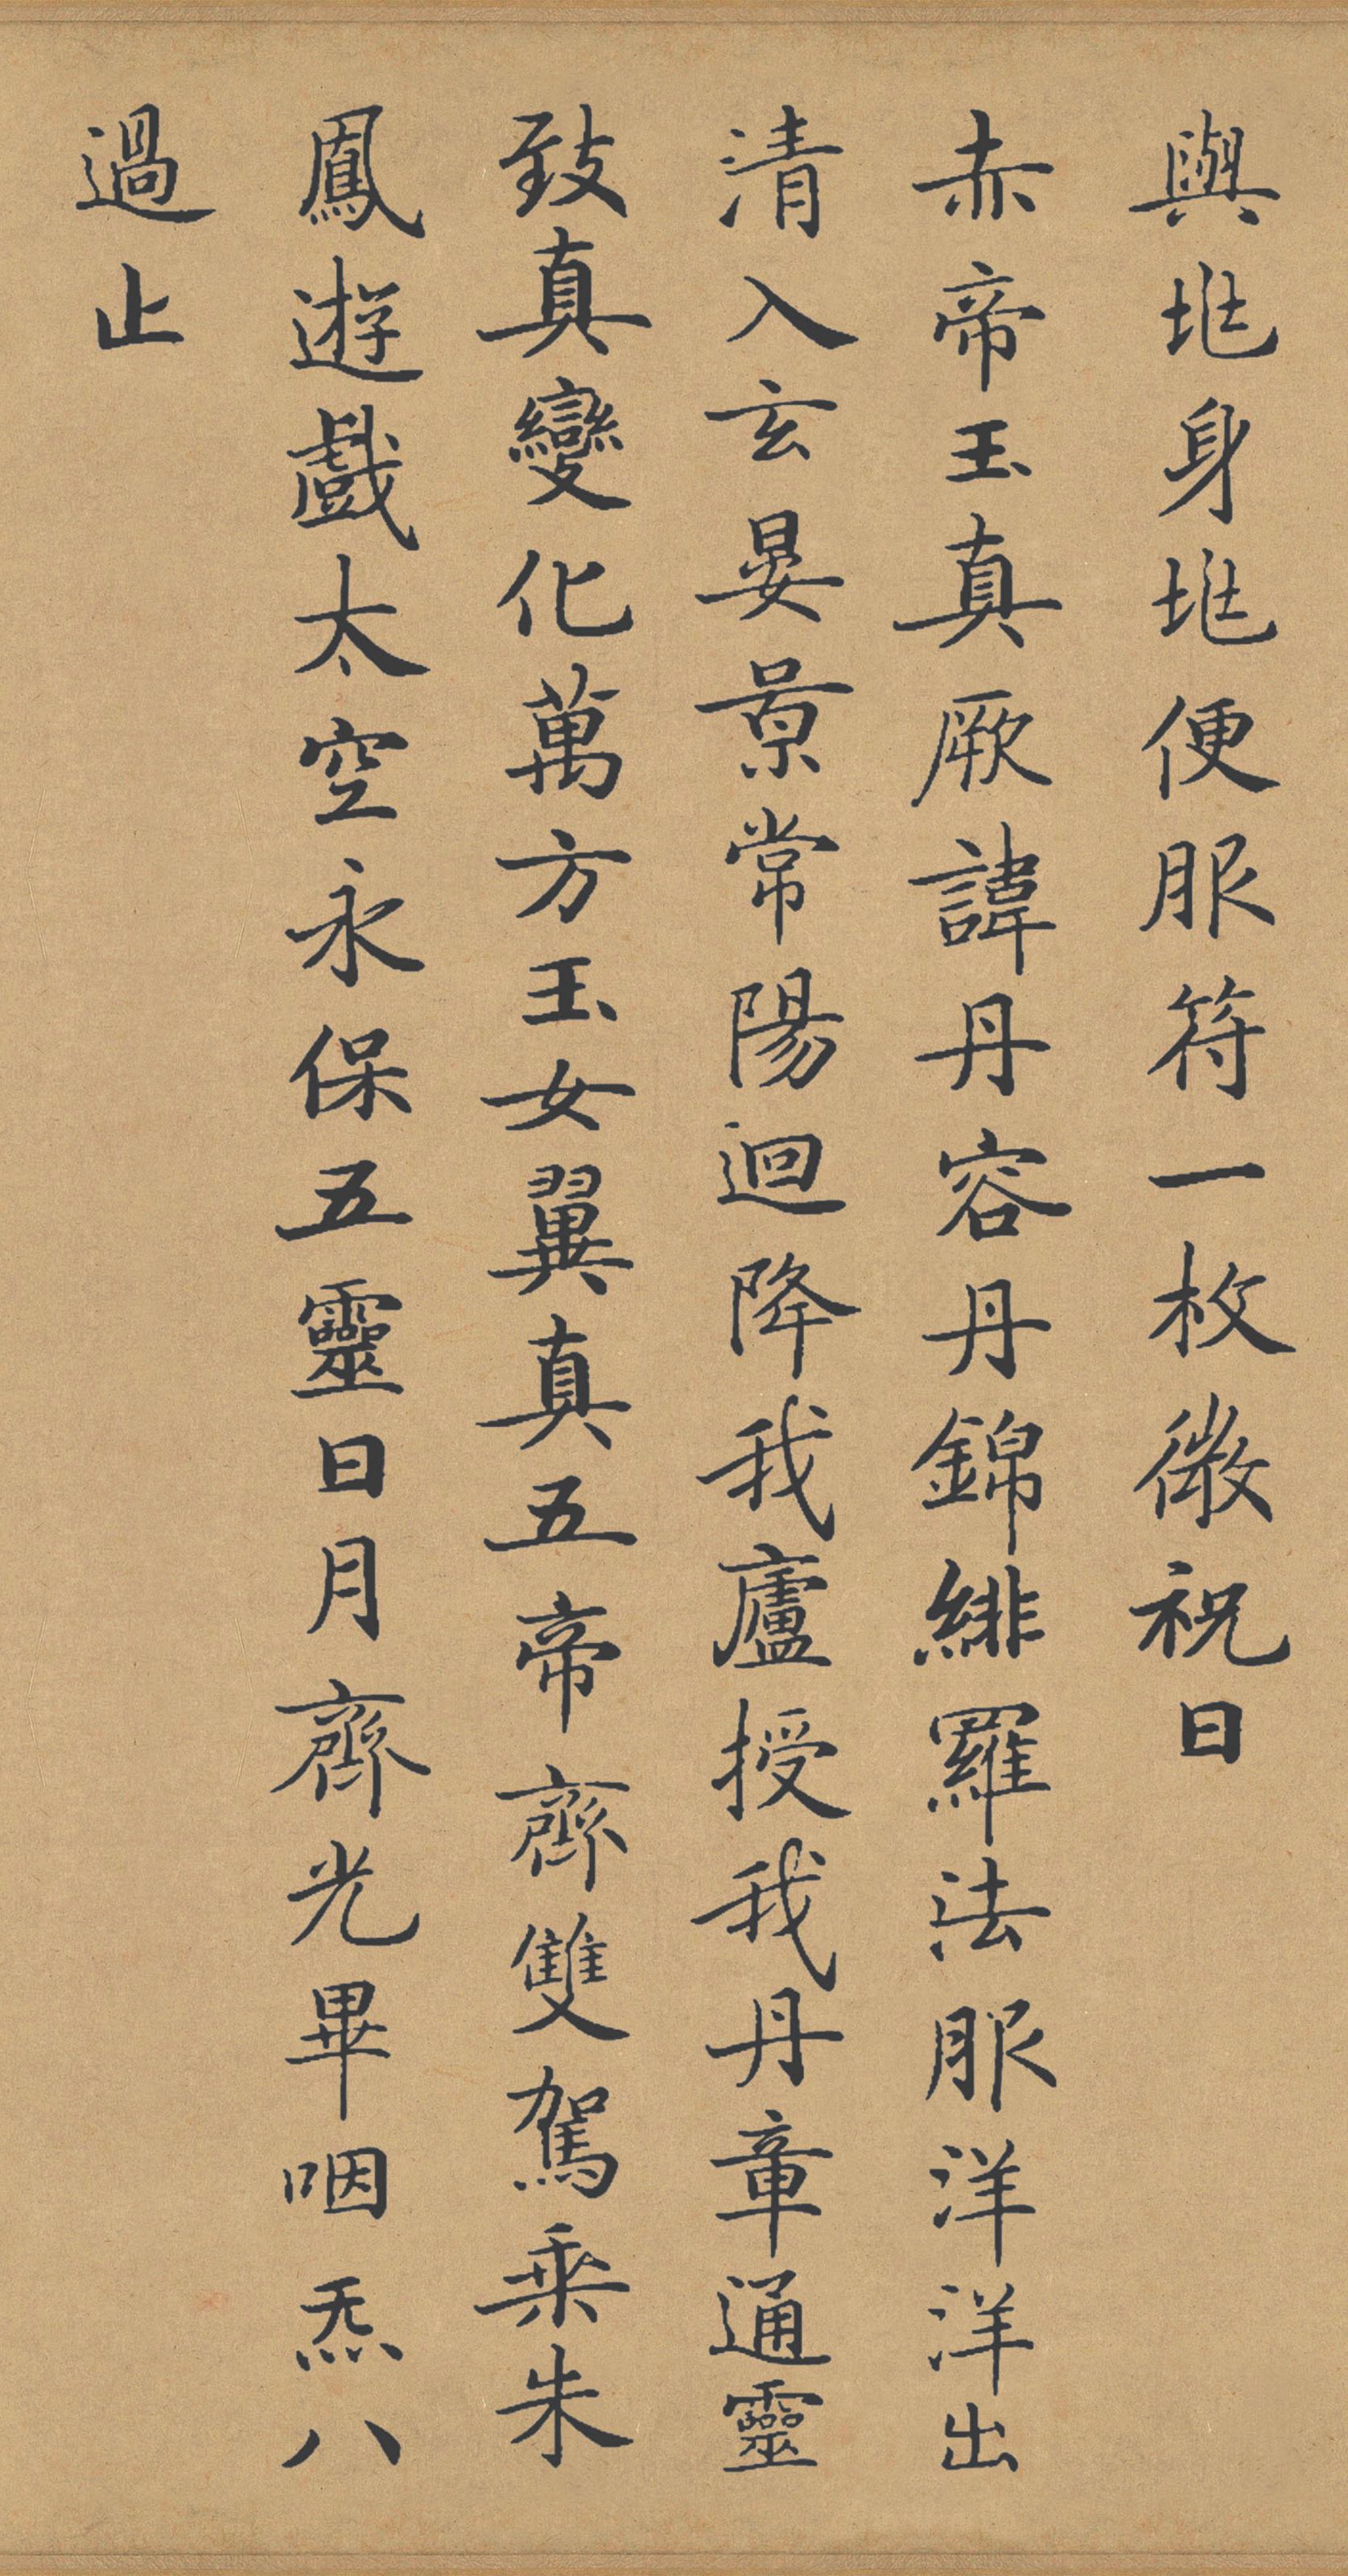 與𡉟身𡉟便服符一枚微祝曰
赤帝玉真厥諱丹容丹錦緋羅法服洋洋出
清入玄晏景常陽迴降我廬授我丹章通靈
致真變化萬方玉女翼真五帝齊雙駕乘朱
鳳遊戲太空永保五靈日月齊光畢咽炁八
過止